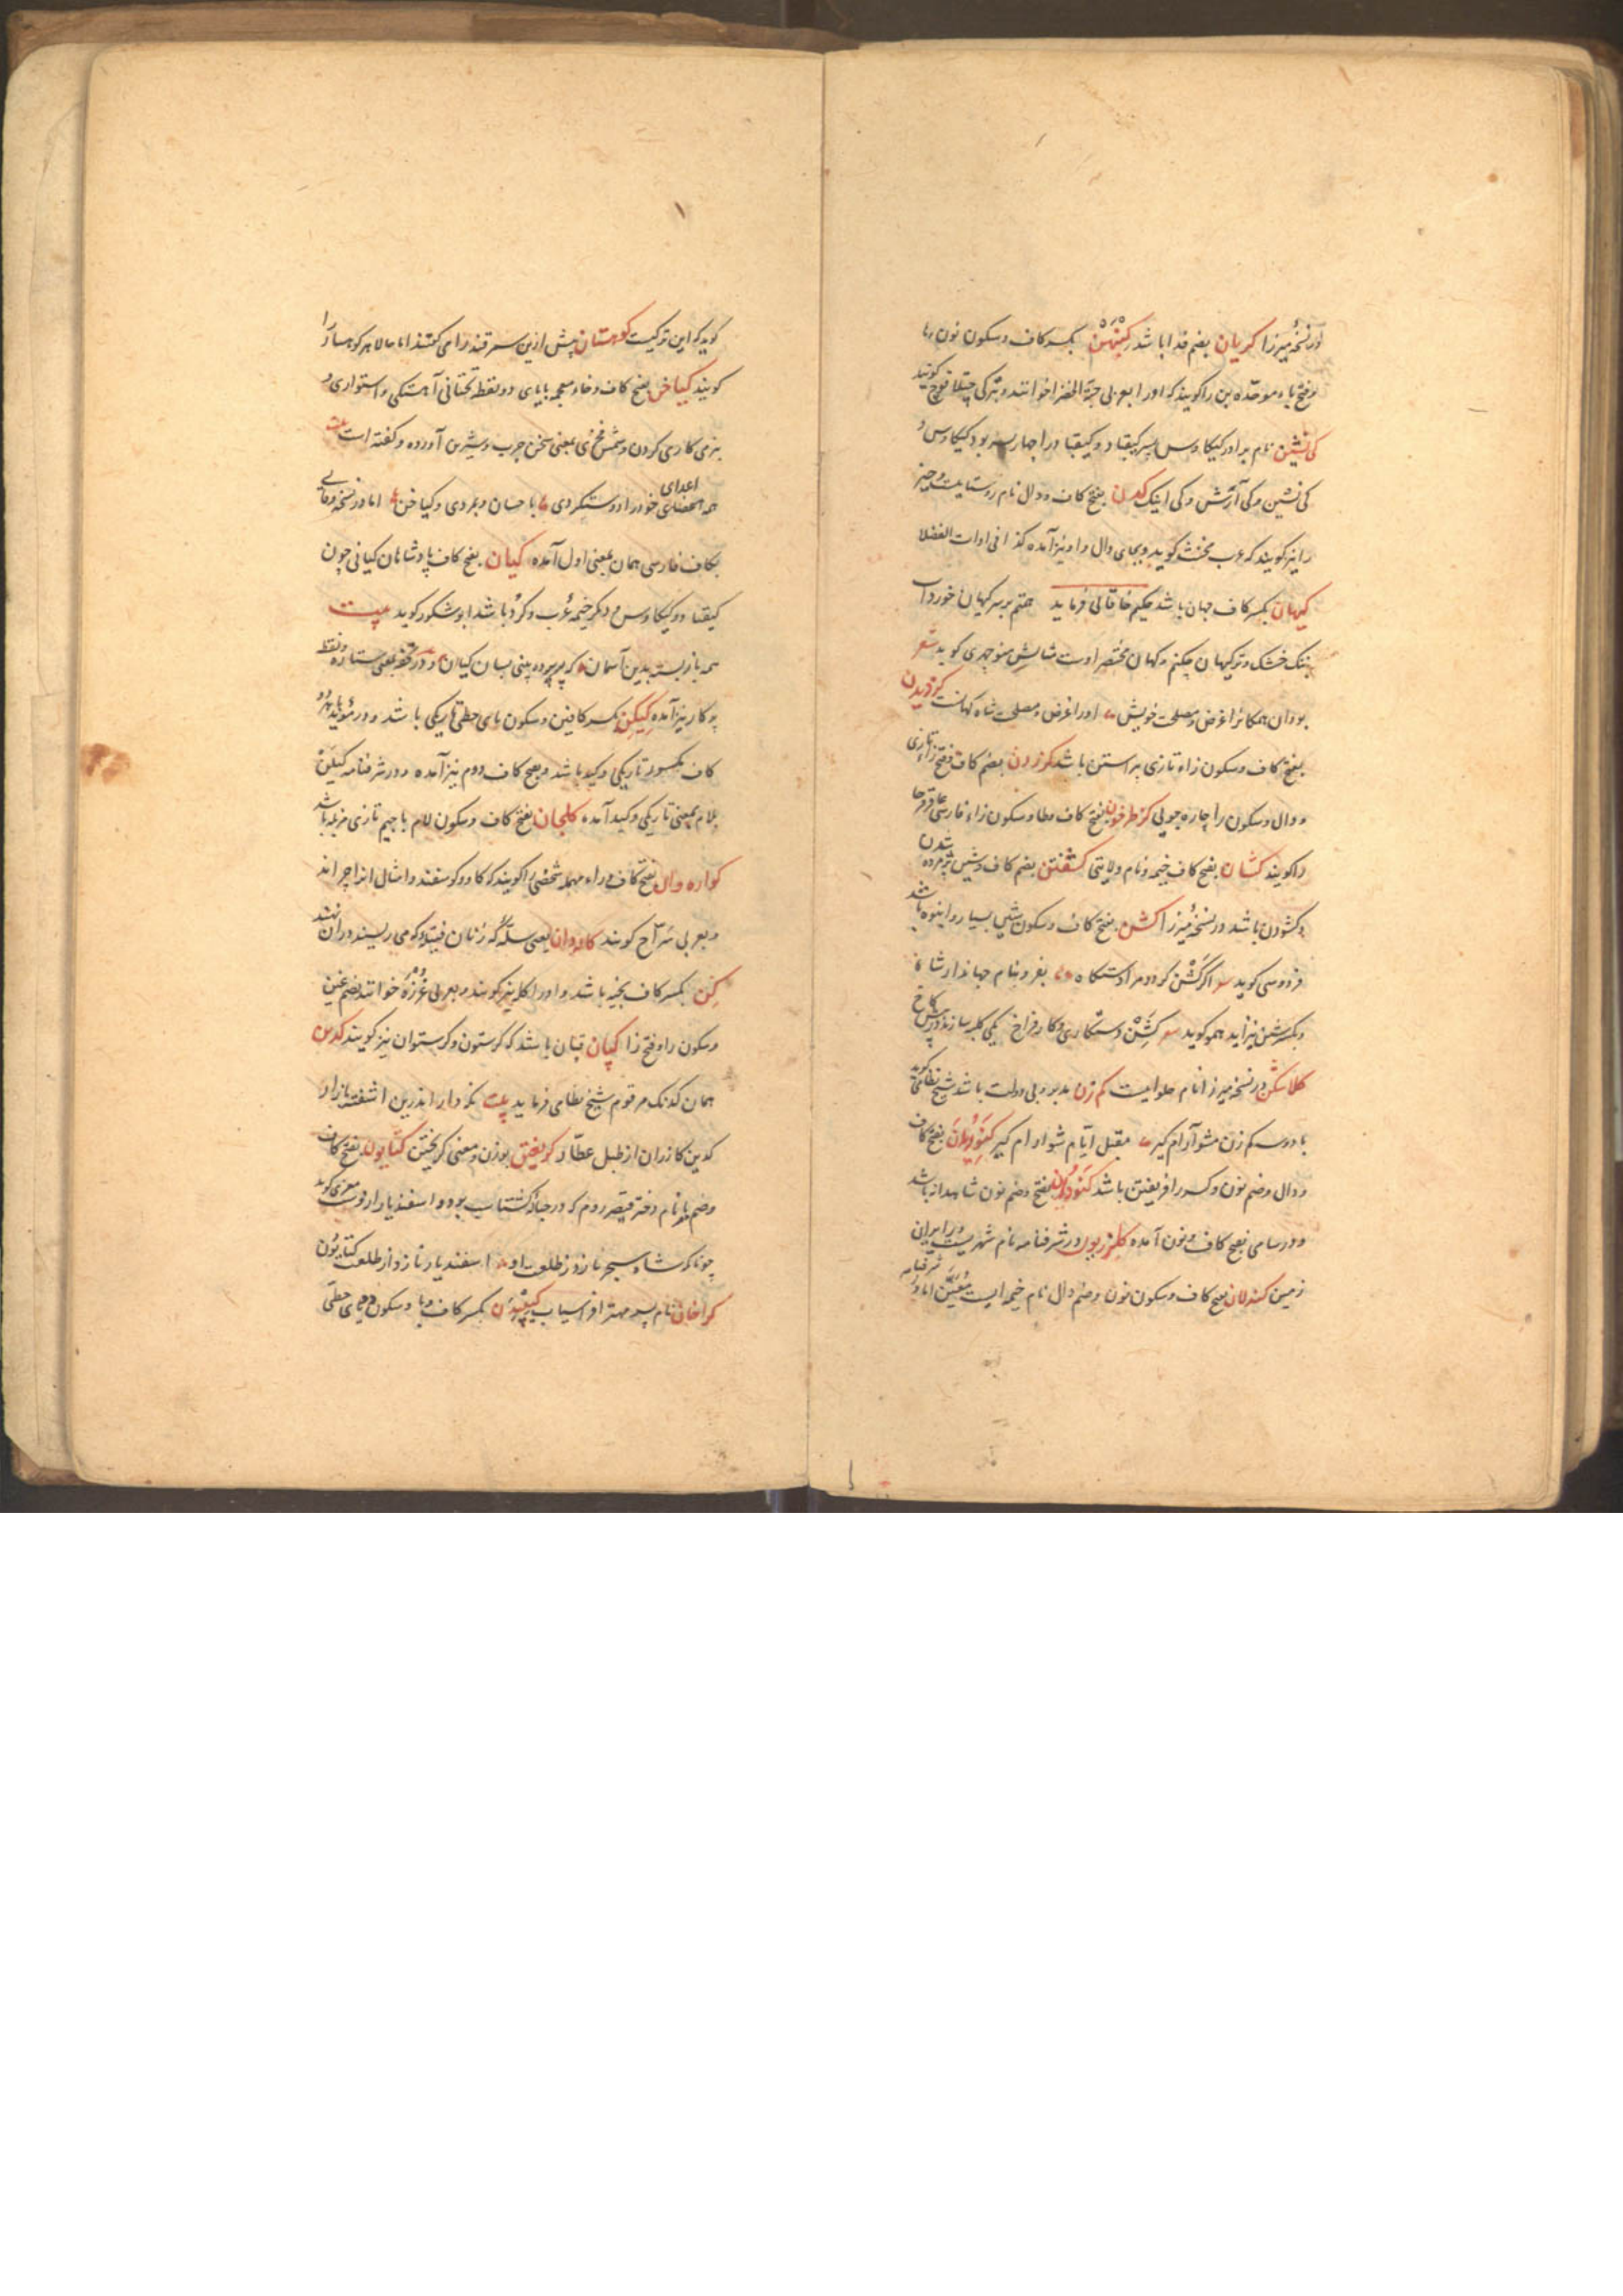 در نسخهٔ میرزا کریان بضم فدا باشد کبنهن بکسر کاف و سکون نون و ها
و فتح باء موحده بن را گویند که او را بعربی حبة الخضرا خوانند و بترکی چتلاقوچ گویند
کی نشین نام برادر کیکاوس پسر کیقباد و کیقباد را چهار پسر بود کیکاوس و
کی نشین و کی آرش و کی اینک کدن بفتح کاف و دال نام روستاییست و چیز
را نیز گویند که عرب مخنث گوید و بجای دال را و نیز آمده کذا فی ادات الفضلا
کیهان بکسر کاف جهان باشد حکیم خاقانی فرماید هستم بر سر کیهان خورد آب
تنک خشک و تر کیهان چکنم و کهان مختصر اوست مثالش منوچهری گوید شعر
بودن همکانرا غرض و مصلحت خویش اورا غرض و مصلحت شاه کهانست کزدیدن
بفتح کاف و سکون زاء تازی پیراستن باشد کزردن بضم کاف و فتح زاء تازی
و دال و سکون را چاره جویی کزطرخون بفتح کاف و طا و سکون زاء فارسی عاقرقرحا
را گویند کشان بفتح کاف خیمه و نام ولایتی کشفتن بضم کاف و شین پژمرده شدن
و گشودن باشد در نسخهٔ میرزا کشن بفتح کاف و سکون شین بسیار و انبوه باشد
فردوسی گوید اگر کشن گردد مرا دستگاه بفر و بنام جهاندار شاه
و بکسر شین نیز آید همو گوید کشن دستکاری و کار فراخ یکی کلبه سازند در پیش کاخ
کلاسکن در نسخهٔ میرزا نام حلوایست کم زن مدبر و بی دولت باشد شیخ نظامی گوید
با دو سه کم زن مشو آرام گیر مقبل ایام شو و نام گیر کنودیدن بفتح کاف
و دال و ضم نون و کسر را فریفتن باشد کنودان بفتح و ضم نون شاهدانه باشد
و در سامی بفتح کاف و نون آمده کلزریون در شرفنامه نام شهریست در ایران
زمین کندلان بفتح کاف و سکون نون و ضم دال نام خیمه ایست معین اما در شرفنامه
گوید که این ترکیست کوهستان پیش ازین سمرقند را می گفتند اما حالا هر کوهسار را
گویند کیاخن بفتح کاف و خاء معجمه با یای دو نقطهٔ تحتانی آهستگی و استواری و
بنرمی کاری کردن و شمس فخری بمعنی سخن چرب و شیرین آورده و گفته است بیت
همه اعدای خود را دوست کردی با حسان و بمردی و کیاخن اما در نسخهٔ وفایی
بکاف فارسی همان بمعنی اول آمده کیان بفتح کاف پادشاهان کیانی چون
کیقباد و کیکاوس و دیگر خیمه عرب و کرد باشد ابوشکور گوید بیت
همه باز بسته بدین آسمان که بر پرده بینی بسان کیان و در تحفه بمعنی ستاره و نقطه
پرکار نیز آمده کیکن بکسر کافین و سکون یای حطی تاریکی باشد و در مؤید با هر دو
کاف مکسور تاریکی و کید باشد و بفتح کاف دوم نیز آمده و در شرفنامه کیلن
بلام بمعنی تاریکی و کید آمده کلجان بفتح کاف و سکون لام با جیم تازی مزبله باشد
کواره وان بفتح کاف و راء مهمله شخصی را گویند که گاو و گوسفند و امثال آنرا چراند
و بعربی سرّاح گویند کادوان یعنی سلّه که زنان فتیله که می ریسند در آن نهند
کن بکسر کاف بخیه باشد و او را کله نیز گویند و بعربی غرزه خوانند بضم غین
و سکون را و فتح زا کپان قپان باشد که کرستون و کرستوان نیز گویند کدین
همان کدنک مرقوم شیخ نظامی فرماید بیت نکردار اندرین آشفته بازار
کدین گازران از طبل عطار کریغتن بوزن و معنی گریختن کتایون بفتح کاف
و ضم یا نام دختر قیصر روم که در حبالهٔ گشتاسب بود و اسفندیار ازوست معزی گوید
چونانکه شاه سنجر نازد ز طلعت او اسفندیار نازد از طلعت کتایون
کراخان نام پسر مهتر افراسیاب کیپیدن بکسر کاف و با و سکون دو یای حطی